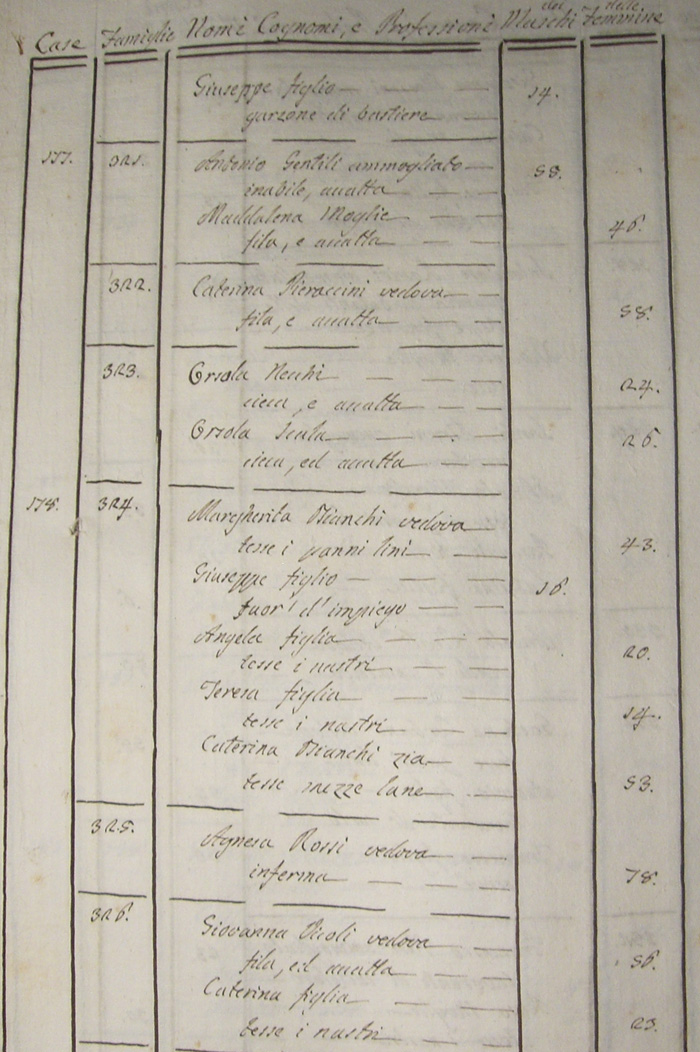 dei delle
Case Famiglie Nomi Cognomi, e Professioni Maschi Femmine
Giuseppe figlio 14.
garzone di bastiere
177. 321. Antonio Gentili ammogliato 58.
inabile, accatta
Maddalena Moglie 46.
fila, e accatta
322. Caterina Pieraccini vedova
fila, e accatta 58.
323. Orsola Necchi 24.
cieca, e accatta
Orsola Scala 26.
cieca, ed accatta
178. 324. Margherita Bianchi vedova
tesse i panni lini 43.
Giuseppe figlio 16.
fuor d'impiego
Angela figlia 20.
tesse i nastri
Teresa figlia 14.
tesse i nastri
Caterina Bianchi zia
tesse mezze lane 53.
325. Agnesa Rossi vedova
inferma 78.
326. Giovanna Paoli vedova
fila, ed accatta 56.
Caterina figlia
tesse i nastri 23.